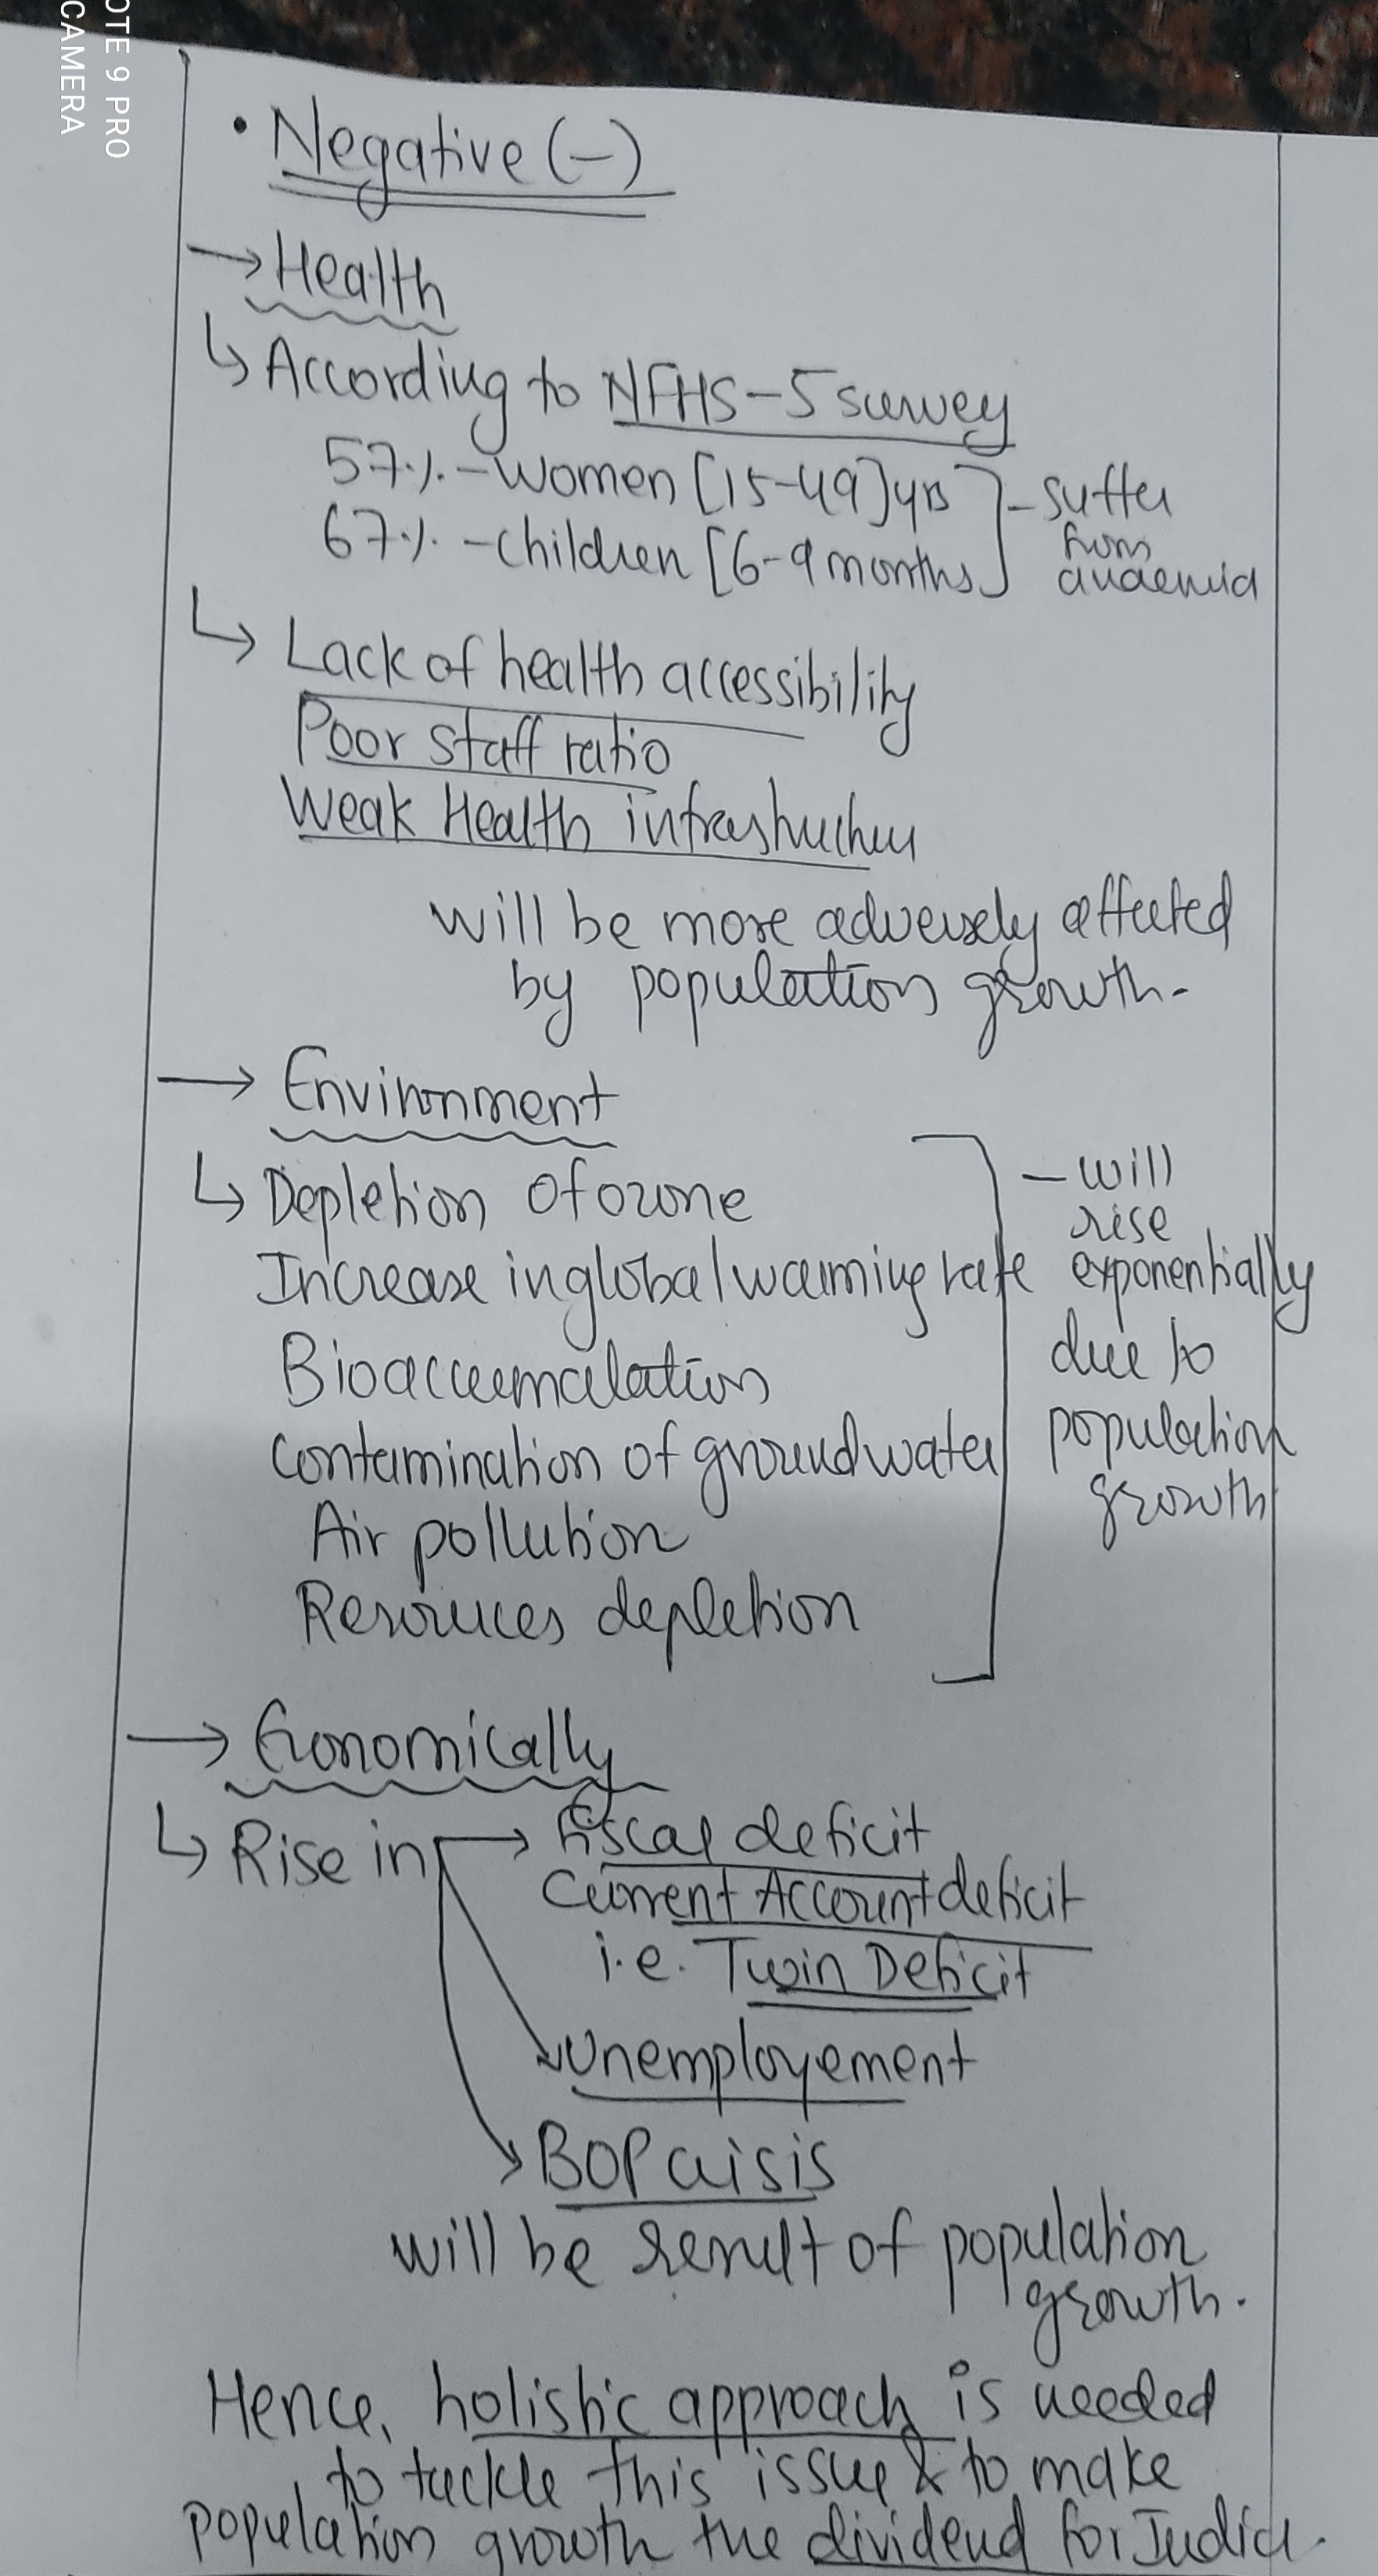 OTE 9 PRO
CAMERA
• Negative (-)
→ Health
↳ According to NFHS-5 survey
57% - Women [15-49] yrs
67% - children [6-9 months]
- suffer
from
anaemia
↳ Lack of health accessibility
Poor staff ratio
Weak Health infrastructure
will be more adversely affected
by population growth.
→ Environment
↳ Depletion of ozone
Increase in global warming rate
Bioaccumalation
Contamination of groundwater
Air pollution
Resources depletion
- will
rise
exponentially
due to
population
growth
→ Economically
↳ Rise in → fiscal deficit
Current Account deficit
i.e. Twin Deficit
Unemployement
BOP crisis
will be result of population
growth.
Hence, holistic approach is needed
to tackle this issue & to make
population growth the dividend for India.